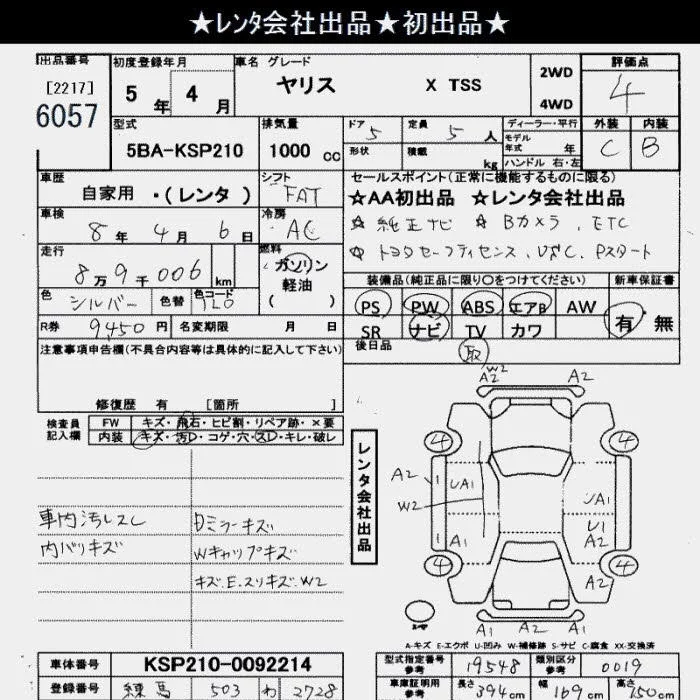 ★レンタ会社出品★初出品★
出品番号
[2217]
6057
初度登録年月
5年 4月
車名 グレード
ヤリス X TSS
2WD
4WD
評価点
4
外装 内装
C B
型式
5BA-KSP210
排気量
1000 cc
ドア 5
形状
定員 5人
積載 kg
ディーラー・平行
モデル年式 年
ハンドル 右・左
車歴
自家用 ・(レンタ)
シフト
FAT
車検
8年 4月 6日
冷房
AC
走行
8万9千006 km
燃料
ガソリン
軽油
( )
色
シルバー
色替
色コード
1E0
R券 9450円
名変期限 月 日
セールスポイント(正常に機能するものに限る)
☆AA初出品 ☆レンタ会社出品
☆ 純正ナビ ☆ Bカメラ、ETC
☆ トヨタセーフティセンス、VSC、Pスタート
装備品(純正品に限り○をつけてください)
PS PW ABS エアB AW
SR ナビ TV カワ
新車保証書
有・無
後日品
取
注意事項申告欄(不具合内容等は具体的に記入して下さい)
修復歴 有 [箇所 ]
検査員記入欄
FW キズ・飛石・ヒビ割・リペア跡・×要
内装 キズ・汚D・コゲ・穴・スD・キレ・破レ
車内汚レスレ
内バリキズ
Dミラーキズ
Wキャップキズ
キズ.E.スリキズ.W2
レンタ会社出品
W2
A2 A2
4 4
A2 UA1 UA1
W2
U1
A1 A2
4 4
A1 A1 A2
A-キズ E-エクボ U-凹み W-補修跡 S-サビ C-腐食 XX-交換済
車体番号 KSP210-0092214
登録番号 練馬 503 わ 2728
型式指定番号参考 19548
類別区分参考 0019
車庫証明用参考 長さ 394cm 幅 169cm 高さ 150cm